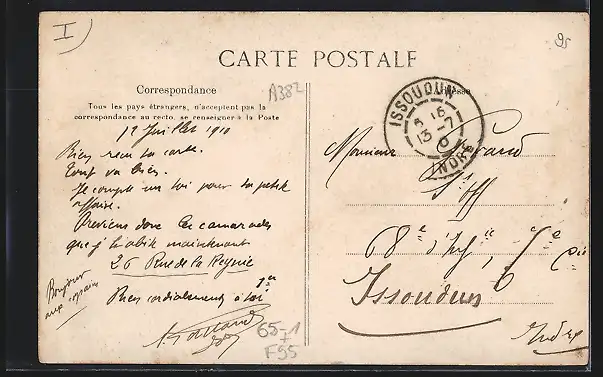 I)
95
CARTE POSTALE
Correspondance
A382
Adresse
Tous les pays étrangers, n'acceptent pas la
correspondance au recto. se renseigner à la Poste
12 Juillet 1910
Bien reçu ta carte.
Tout va bien.
Je compte sur toi pour ta petite
affaire.
Previens donc les camarades
que j'habite maintenant
26 Rue de la Reynie
1er
Bien cordialement à toi
Bonjour
aux copains
65-1
F95
ISSOUDUN
13-7
INDRE
Monsieur
S/ off
68e d'Infie, 7e Cie
Issoudun
Indre